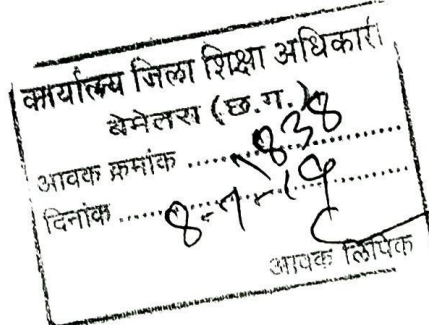 कार्यालय जिला शिक्षा अधिकारी
बेमेतरा (छ.ग.)
आवक क्रमांक ........1838
दिनांक ........8-7-19........
आवक लिपिक